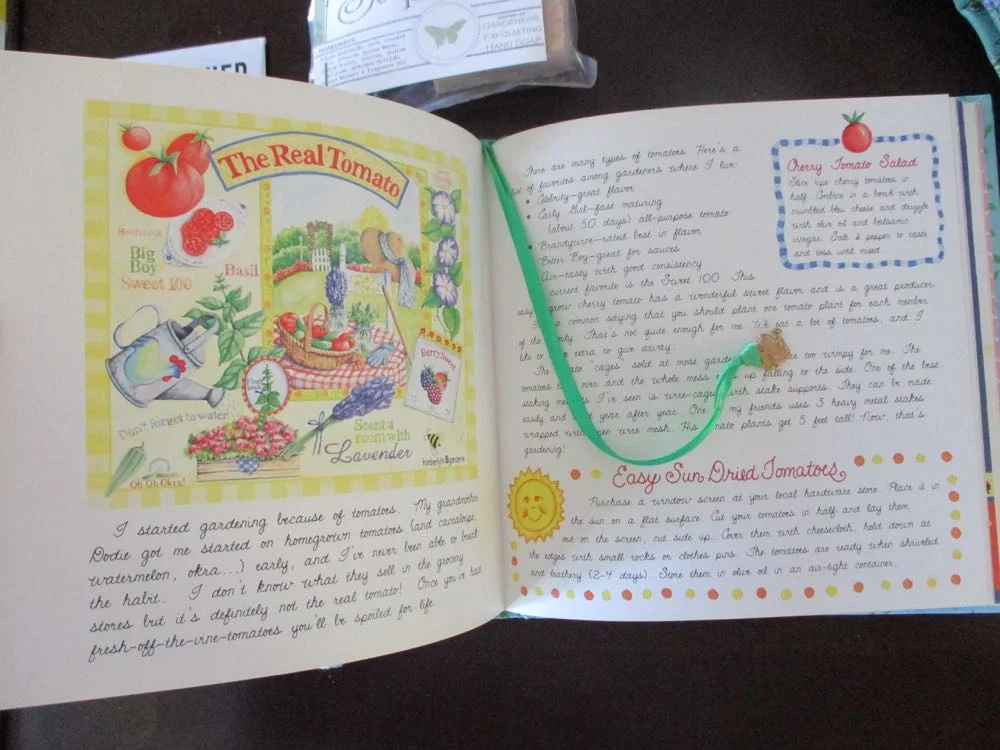 GARDENERS
EXFOLIATING
HAND SOAP
INGREDIENTS:
The Real Tomato
Beefsteak
Big
Boy
Sweet 100
Basil
Berry Sweet
Don't forget to water
Scent a
room with
Lavender
Oh, Oh Okra!
I started gardening because of tomatoes. My grandmother
Dodie got me started on homegrown tomatoes (and cantaloupe,
watermelon, okra...) early, and I've never been able to break
the habit. I don't know what they sell in the grocery
stores but it's definitely not the real tomato! Once you've had
fresh-off-the-vine-tomatoes you'll be spoiled for life.
There are many types of tomatoes. Here's a
list of favorites among gardeners where I live:
• Celebrity-great flavor
• Early Girl-fast maturing
(about 50 days) all-purpose tomato
• Brandywine-rated best in flavor
Better Boy-great for sauces
Ace-tasty with good consistency
current favorite is the Sweet 100. This
easy grow cherry tomato has a wonderful sweet flavor and is a great producer.
a common saying that you should plant one tomato plant for each member
of the That's not quite enough for me. We eat a lot of tomatoes, and I
like to extra to give away.
The "cages" sold at most too wimpy for me. The
tomatoes over and the whole mess up falling to the side. One of the best
staking I've seen is wire-cages with stake supports. They can be made
easily and year after year. One my friends uses 3 heavy metal stakes
wrapped with wire mesh. His plants get 5 feet tall! Now, that's
gardening!
Cherry Tomato Salad
Slice ripe cherry tomatoes in
half. Combine in a bowl with
crumbled bleu cheese and drizzle
with olive oil and balsamic
vinegar. Salt & pepper to taste
and toss until mixed.
Easy Sun Dried Tomatoes
Purchase a window screen at your local hardware store. Place it in
the sun on a flat surface. Cut your tomatoes in half and lay them
out on the screen, cut side up. Cover them with cheesecloth, hold down at
the edges with small rocks or clothes pins. The tomatoes are ready when shriveled
and leathery (2-4 days). Store them in olive oil in an air-tight container.